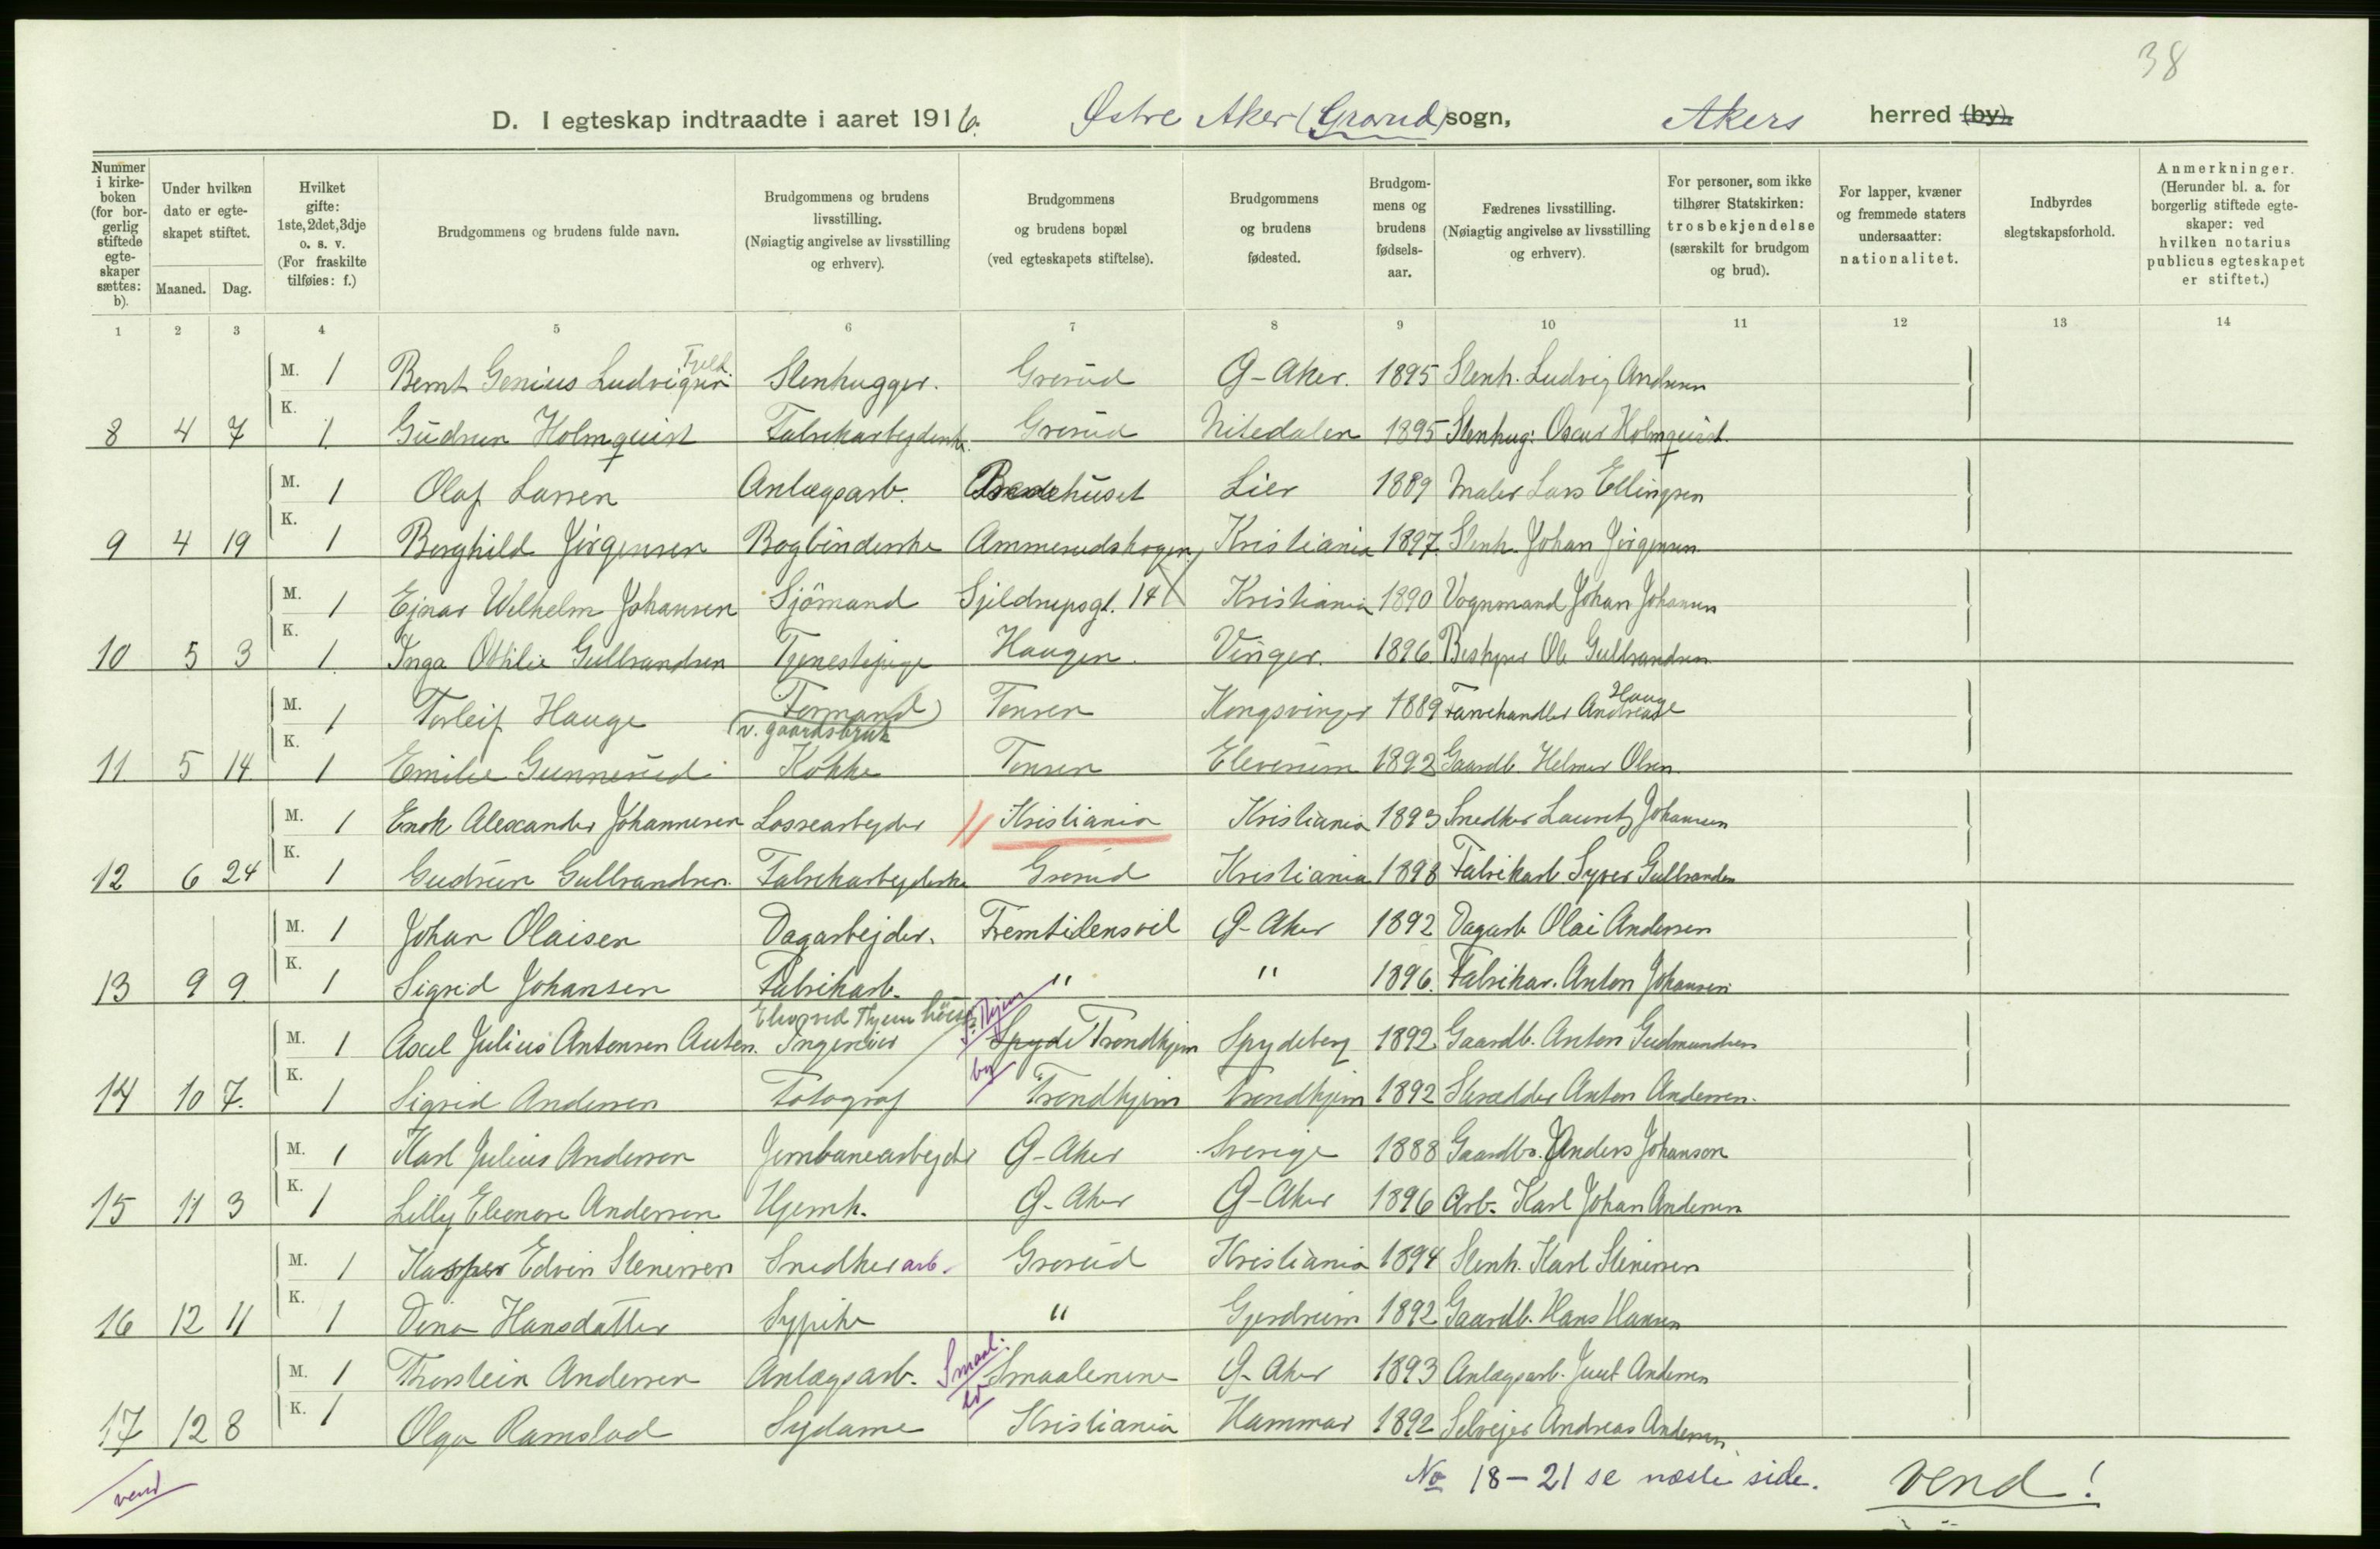 38
D. I egteskap indtraadte i aaret 1916. Østre Aker (Grorud) sogn, Akers herred (by).
Nummer i kirke-boken (for bor-gerlig stiftede egte-skaper sættes: b).
Under hvilken dato er egte-skapet stiftet.
Maaned. Dag.
Hvilket gifte: 1ste, 2det, 3dje o. s. v. (For fraskilte tilføies: f.)
Brudgommens og brudens fulde navn.
Brudgommens og brudens livsstilling. (Nøiagtig angivelse av livsstilling og erhverv).
Brudgommens og brudens bopæl (ved egteskapets stiftelse).
Brudgommens og brudens fødested.
Brudgom-mens og brudens fødsels-aar.
Fædrenes livsstilling. (Nøiagtig angivelse av livsstilling og erhverv).
For personer, som ikke tilhører Statskirken: trosbekjendelse (særskilt for brudgom og brud).
For lapper, kvæner og fremmede staters undersaatter: nationalitet.
Indbyrdes slegtskapsforhold.
Anmerkninger. (Herunder bl. a. for borgerlig stiftede egte-skaper: ved hvilken notarius publicus egteskapet er stiftet.)
1 2 3 4 5 6 7 8 9 10 11 12 13 14
M. 1 Bernt Genius Ludvigsen Stenhugger. Grorud Ø-Aker. 1895 Stenh. Ludvig Andersen
8 4 7 K. 1 Gudrun Holmquist Fabrikarbejderske. Grorud Nitedalen 1895 Stenhug: Oscar Holmquist.
M. 1 Olaf Larsen Anlægsarb. Lier 1889 Maler Lars Ellingsen
9 4 19 K. 1 Borghild Jørgensen Bogbinderske Ammerudskogen, Kristiania 1897. Stenh. Johan Jørgensen
M. 1 Ejnar Wilhelm Johansen Sjömand Sjeldrupsgt. 14 Kristiania 1890 Vognmand Johan Johansen
10 5 3 K. 1 Inga Othilie Gulbrandsen Tjenestepige Haugen. Vinger. 1896. Bestyrer Ole Gulbrandsen
M. 1 Torleif Hauge Formand (v. gaardsbruk) Tonsen Kongsvinger 1889 Farvehandler Andreas Hauge
11 5 14 K. 1 Emilie Gunnerud Kokke Tonsen Eleverum 1892 Gaardb. Helmer Olsen
M. 1 Enok Alexander Johannesen Lossearbejder Kristiania Kristiania 1893 Snedker Lauritz Johansen
12 6 24 K. 1 Gudrun Gulbrandsen. Fabrikarbejderske Grorud Kristiania 1898 Fabrikarb. Syver Gulbrandsen
M. 1 Johan Olaisen Dagarbejder. Fremtidensvei Ø-Aker 1892 Dagarb Olai Andersen
13 9 9 K. 1 Sigrid Johansen Fabrikarb. " " 1896. Fabrikar. Anton Johansen
M. 1 Axel Julius Antonsen Auten. Ingeniør Spyde Trondhjem Spydeberg 1892 Gaardb. Anton Gudmundsen
14 10 7. K. 1 Sigrid Andersen Fotograf Trondhjem Trondhjem 1892 Skrædder Anton Andersen.
M. 1 Karl Julius Andersen Jernbanearbejder Ø-Aker Sverige 1888 Gaardbr. Anders Johanson
15 11 3 K. 1 Lilly Eleonore Andersen Hjemh. Ø-Aker Ø-Aker 1896 Arb. Karl Johan Andersen
M. 1 Kasper Edvin Stenersen Snedkerarb. Grorud Kristiania 1894 Stenh. Karl Stenersen
16 12 11 K. 1 Dina Hansdatter Sypike " Gjerdrum 1892 Gaardb. Hans Hansen
M. 1 Thorstein Andersen Anlægsarb. Smaal. Smaalenene Ø-Aker 1893 Anlægsarb. Juul Andersen
17 12 8 K. 1 Olga Ramstad Sydame Kristiania Hammar 1892 Selvejer Andreas Andersen
vend
No 18-21 se næste side. vend!